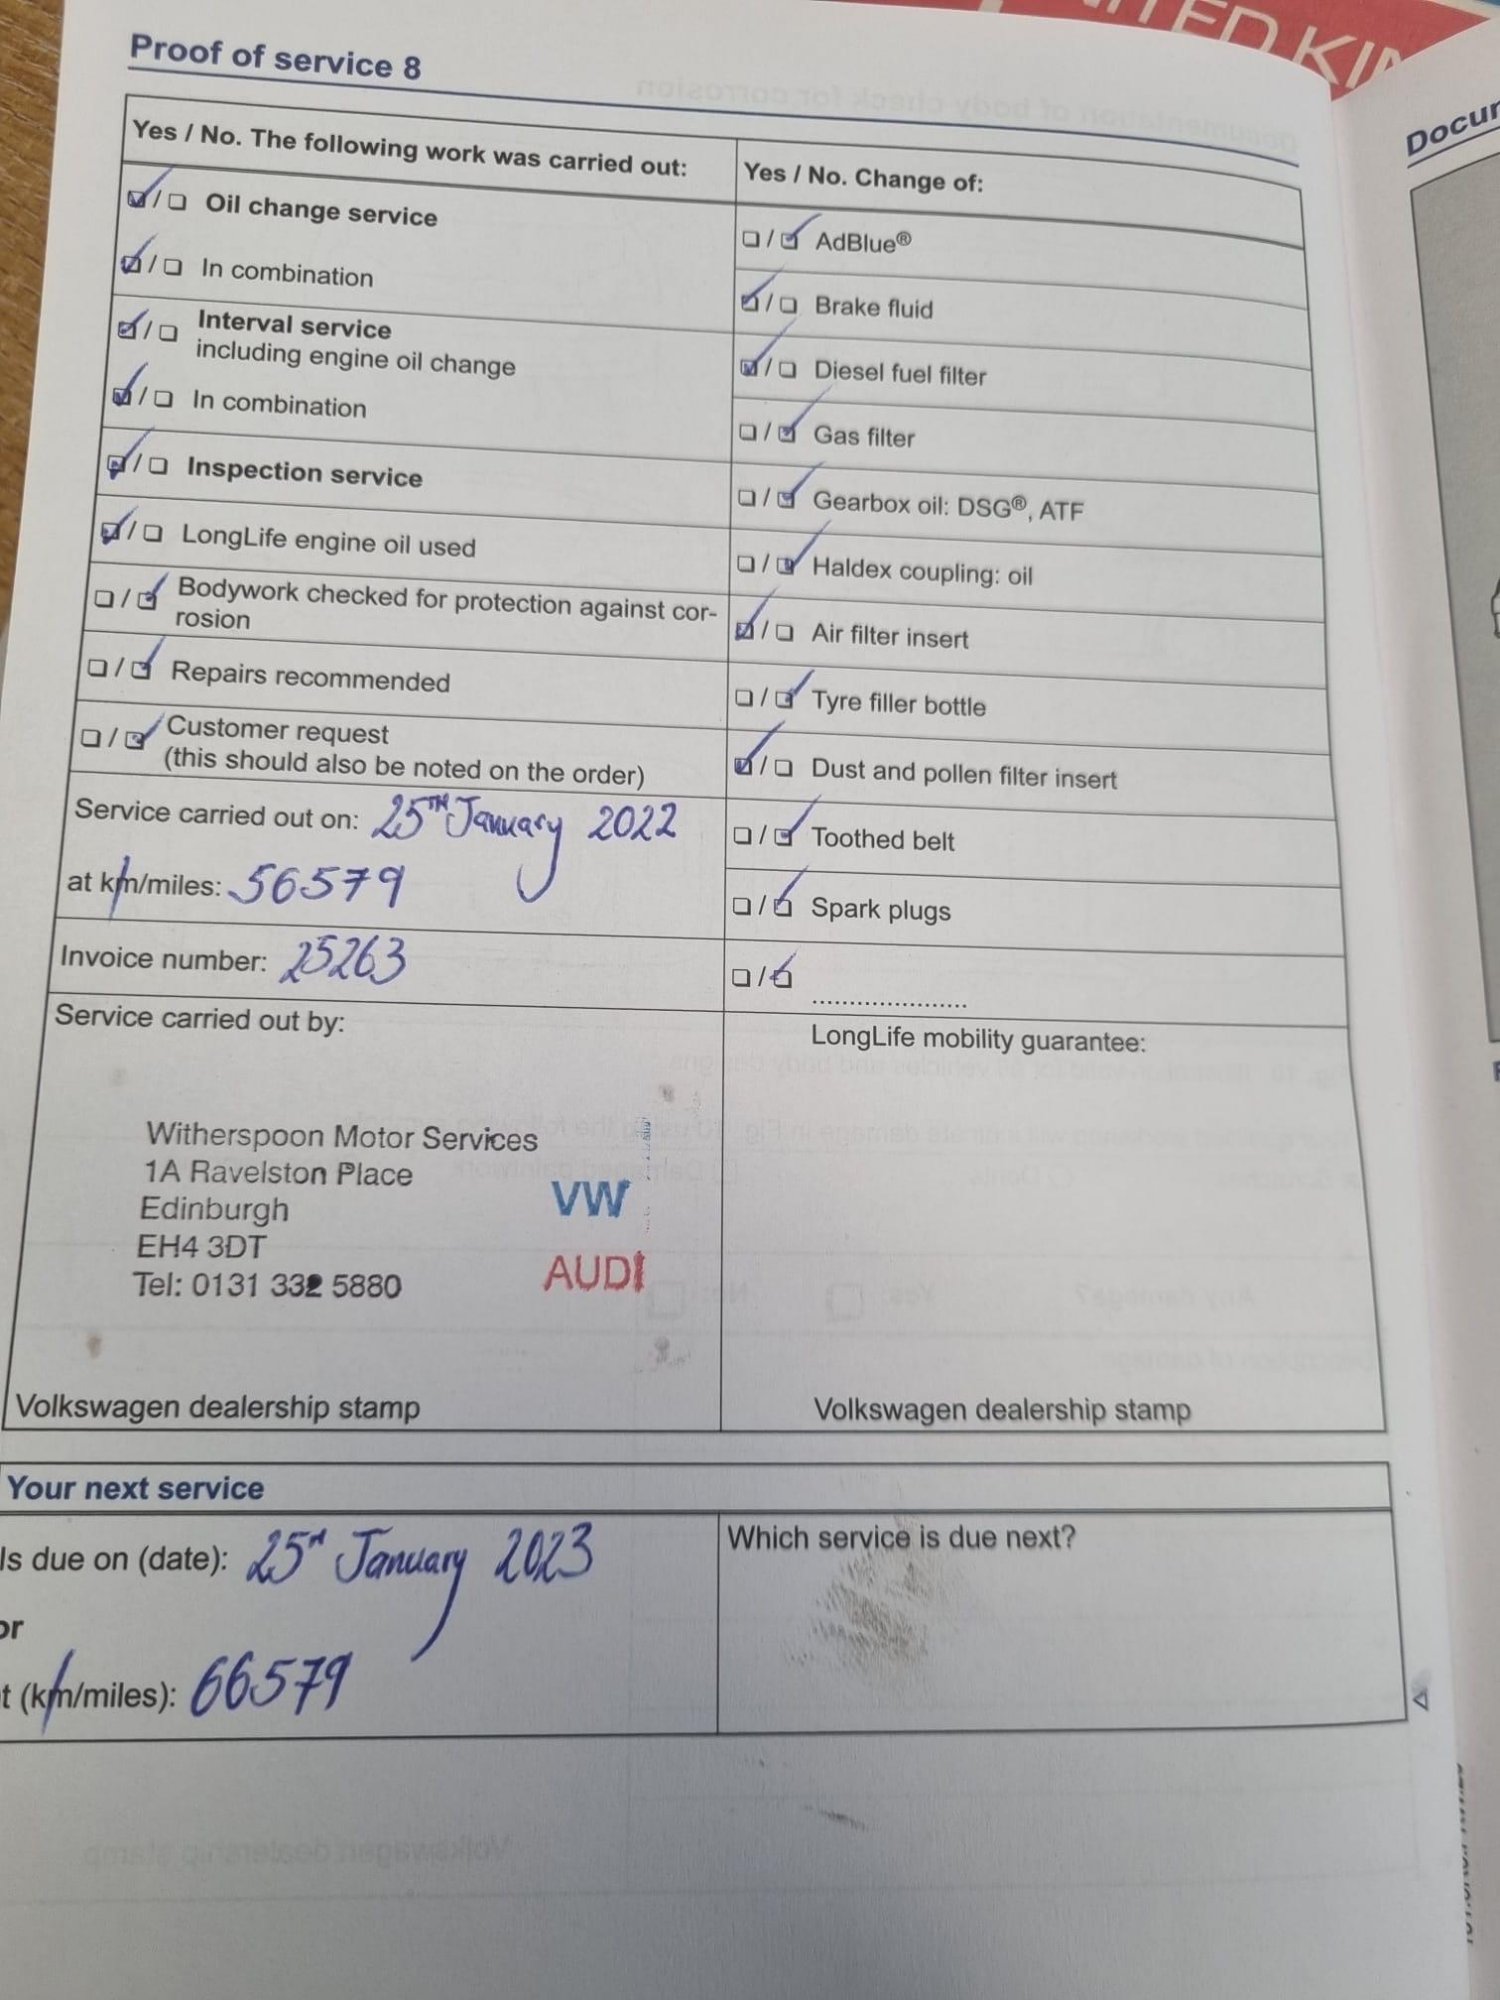 NITED KIN
Docur
Proof of service 8
Yes / No. The following work was carried out:
☑/☐ Oil change service
☑/☐ In combination
☑/☐ Interval service
including engine oil change
☑/☐ In combination
☑/☐ Inspection service
☑/☐ LongLife engine oil used
☐/☑ Bodywork checked for protection against cor-
rosion
☐/☑ Repairs recommended
☐/☑ Customer request
(this should also be noted on the order)
Service carried out on: 25TH January 2022
at km/miles: 56579
Invoice number: 25263
Service carried out by:
Witherspoon Motor Services
1A Ravelston Place
Edinburgh
EH4 3DT
Tel: 0131 332 5880
VW
AUDI
Volkswagen dealership stamp
Yes / No. Change of:
☐/☑ AdBlue®
☑/☐ Brake fluid
☑/☐ Diesel fuel filter
☐/☑ Gas filter
☐/☑ Gearbox oil: DSG®, ATF
☐/☑ Haldex coupling: oil
☑/☐ Air filter insert
☐/☑ Tyre filler bottle
☑/☐ Dust and pollen filter insert
☐/☑ Toothed belt
☐/☑ Spark plugs
☐/☑ ......................
LongLife mobility guarantee:
Volkswagen dealership stamp
Your next service
Is due on (date): 25th January 2023
or
t (km/miles): 66579
Which service is due next?